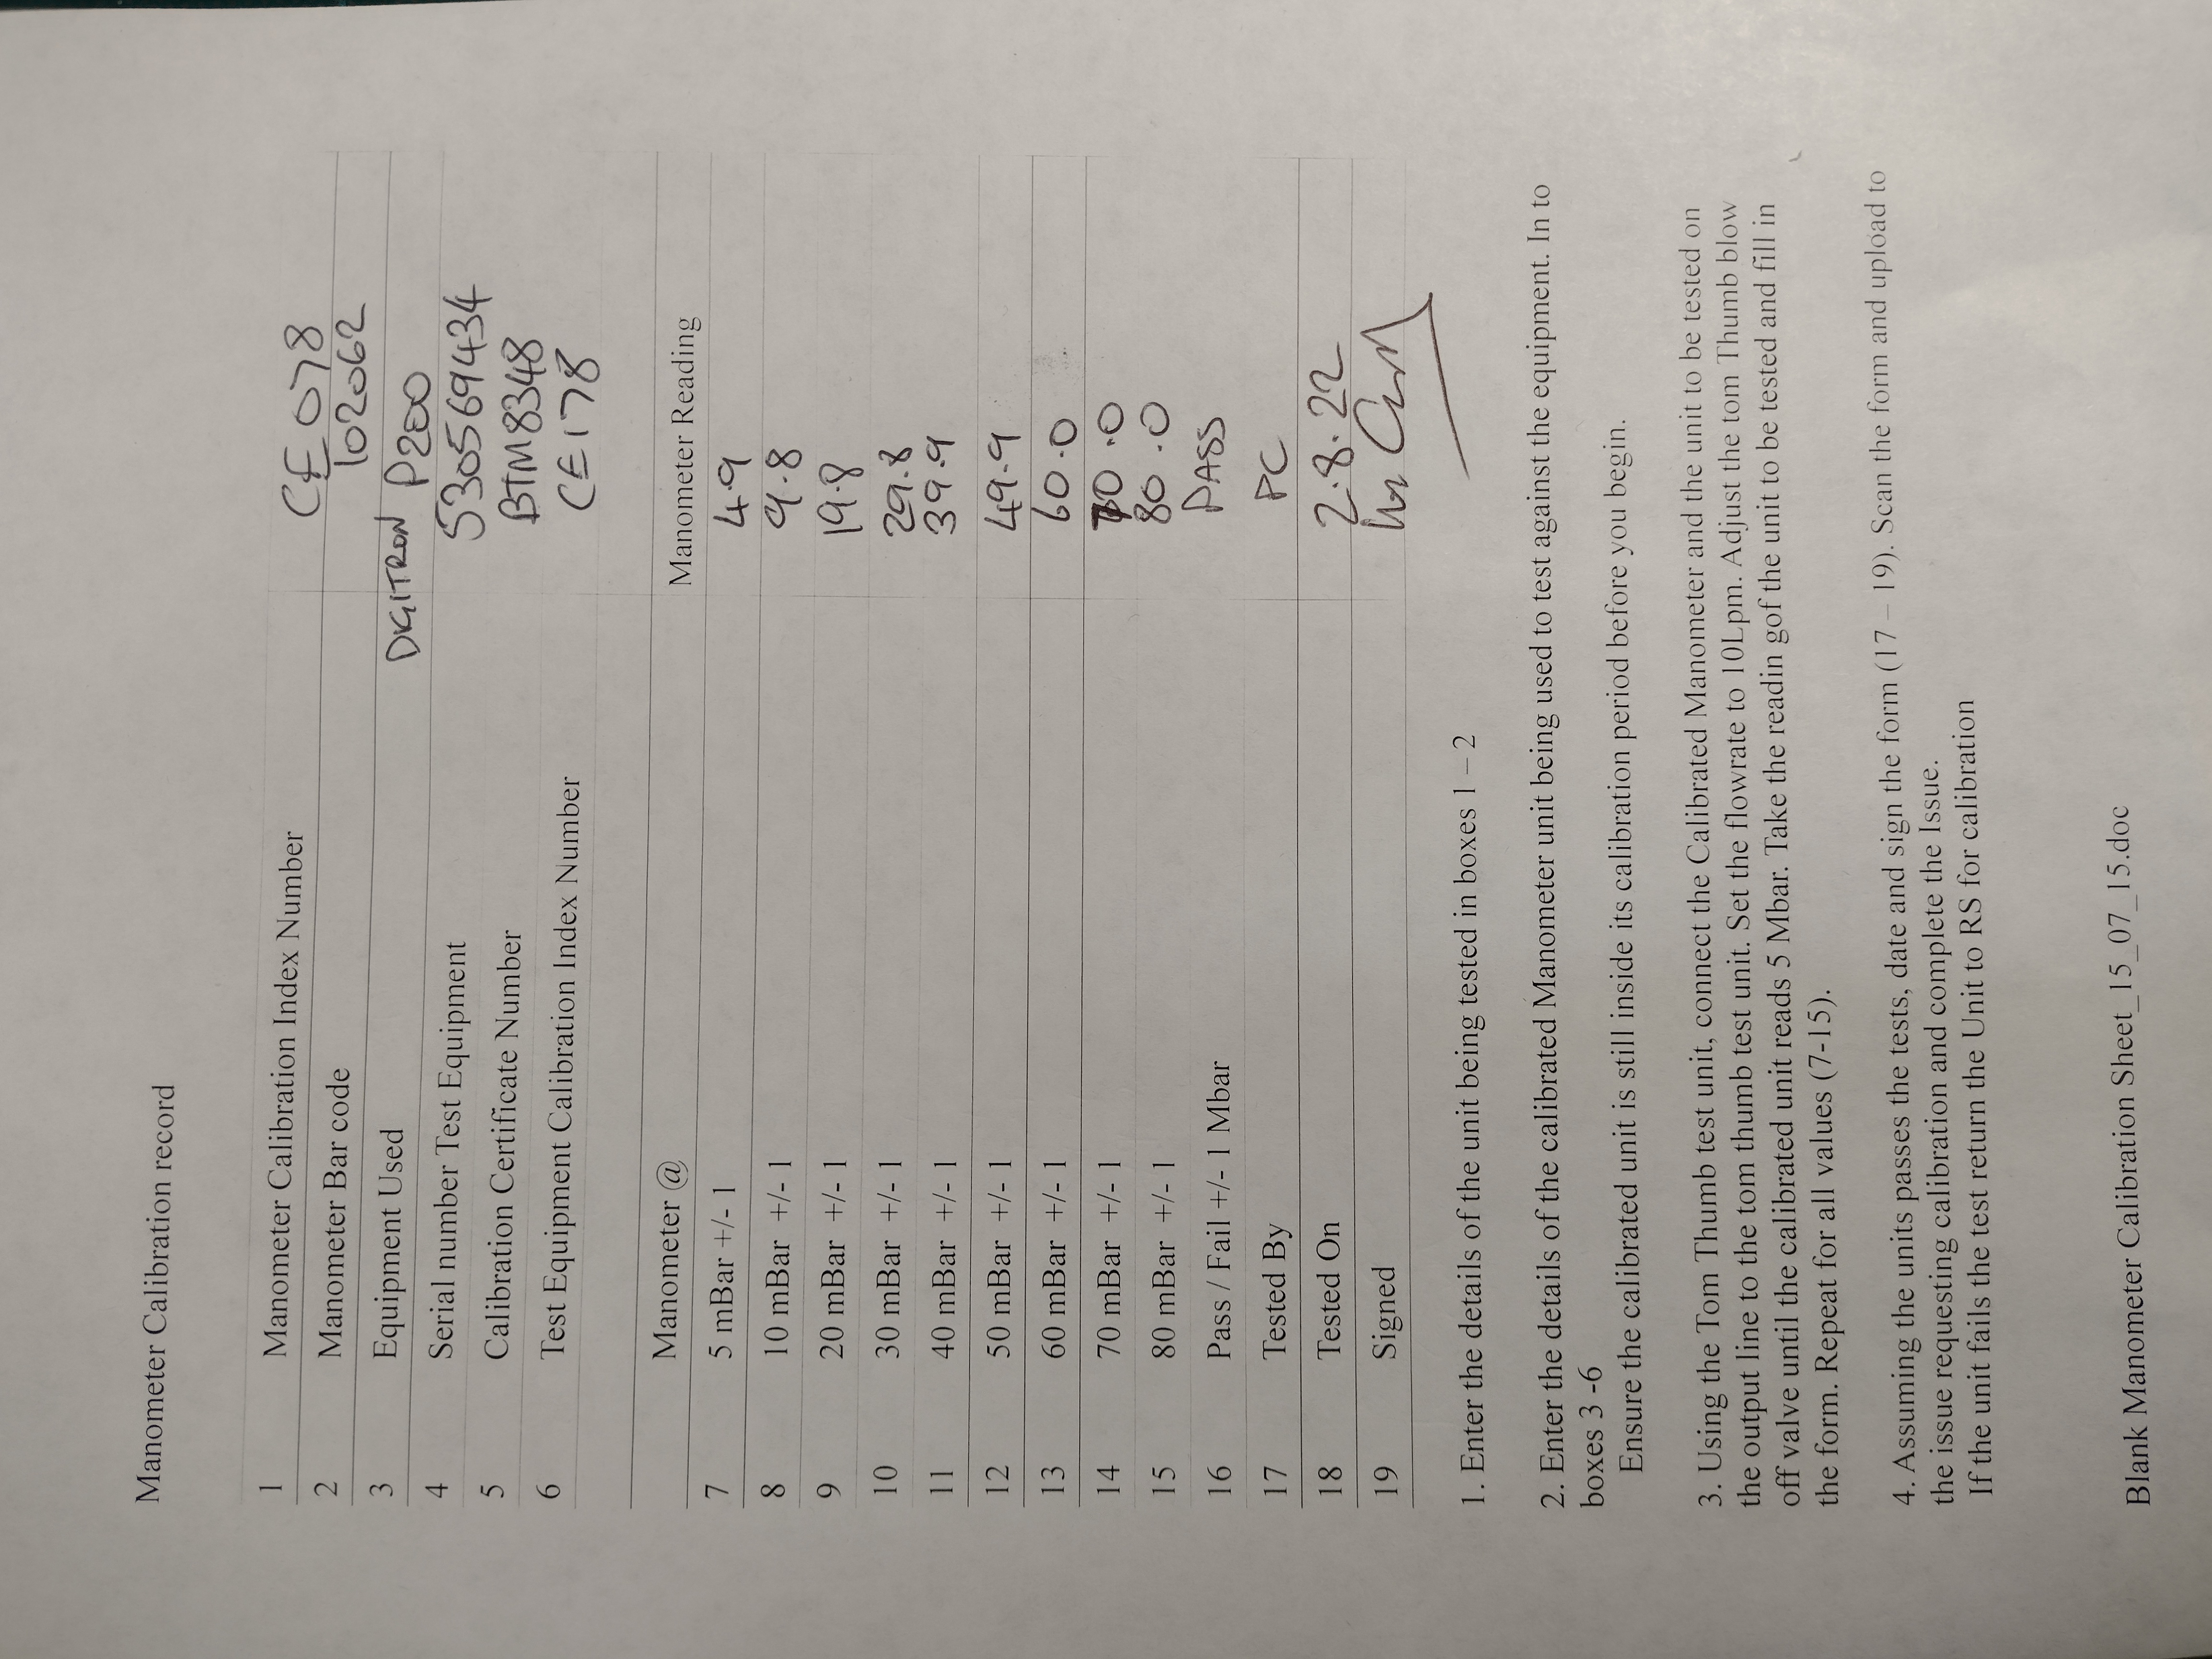 Manometer Calibration record
1 Manometer Calibration Index Number CE078
2 Manometer Bar code 102062
3 Equipment Used DIGITRON P200
4 Serial number Test Equipment 5305694434
5 Calibration Certificate Number BTM8348
6 Test Equipment Calibration Index Number CE178
Manometer @ Manometer Reading
7 5 mBar +/- 1 4.9
8 10 mBar +/- 1 9.8
9 20 mBar +/- 1 19.8
10 30 mBar +/- 1 29.8
11 40 mBar +/- 1 39.9
12 50 mBar +/- 1 49.9
13 60 mBar +/- 1 60.0
14 70 mBar +/- 1 70.0
15 80 mBar +/- 1 80.0
16 Pass / Fail +/- 1 Mbar PASS
17 Tested By PC
18 Tested On 2.8.22
19 Signed
1. Enter the details of the unit being tested in boxes 1 – 2
2. Enter the details of the calibrated Manometer unit being used to test against the equipment. In to
boxes 3 -6
Ensure the calibrated unit is still inside its calibration period before you begin.
3. Using the Tom Thumb test unit, connect the Calibrated Manometer and the unit to be tested on
the output line to the tom thumb test unit. Set the flowrate to 10Lpm. Adjust the tom Thumb blow
off valve until the calibrated unit reads 5 Mbar. Take the readin gof the unit to be tested and fill in
the form. Repeat for all values (7-15).
4. Assuming the units passes the tests, date and sign the form (17 – 19). Scan the form and upload to
the issue requesting calibration and complete the Issue.
If the unit fails the test return the Unit to RS for calibration
Blank Manometer Calibration Sheet_15_07_15.doc